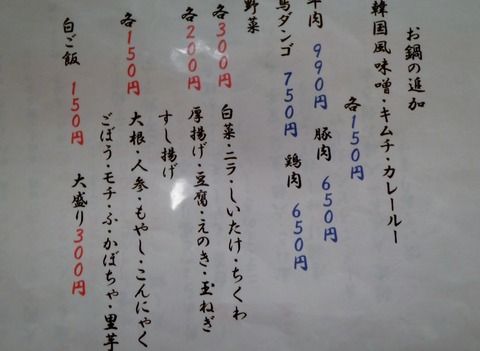 お鍋の追加
韓国風味噌・キムチ・カレールー
各150円
牛肉 990円 豚肉 650円
鶏ダンゴ 750円 鶏肉 650円
野菜
各300円 白菜・ニラ・しいたけ・ちくわ
各200円 厚揚げ・豆腐・えのき・玉ねぎ
すし揚げ
各150円 大根・人参・もやし・こんにゃく
ごぼう・モチ・ふ・かぼちゃ・里芋
白ご飯 150円 大盛り300円